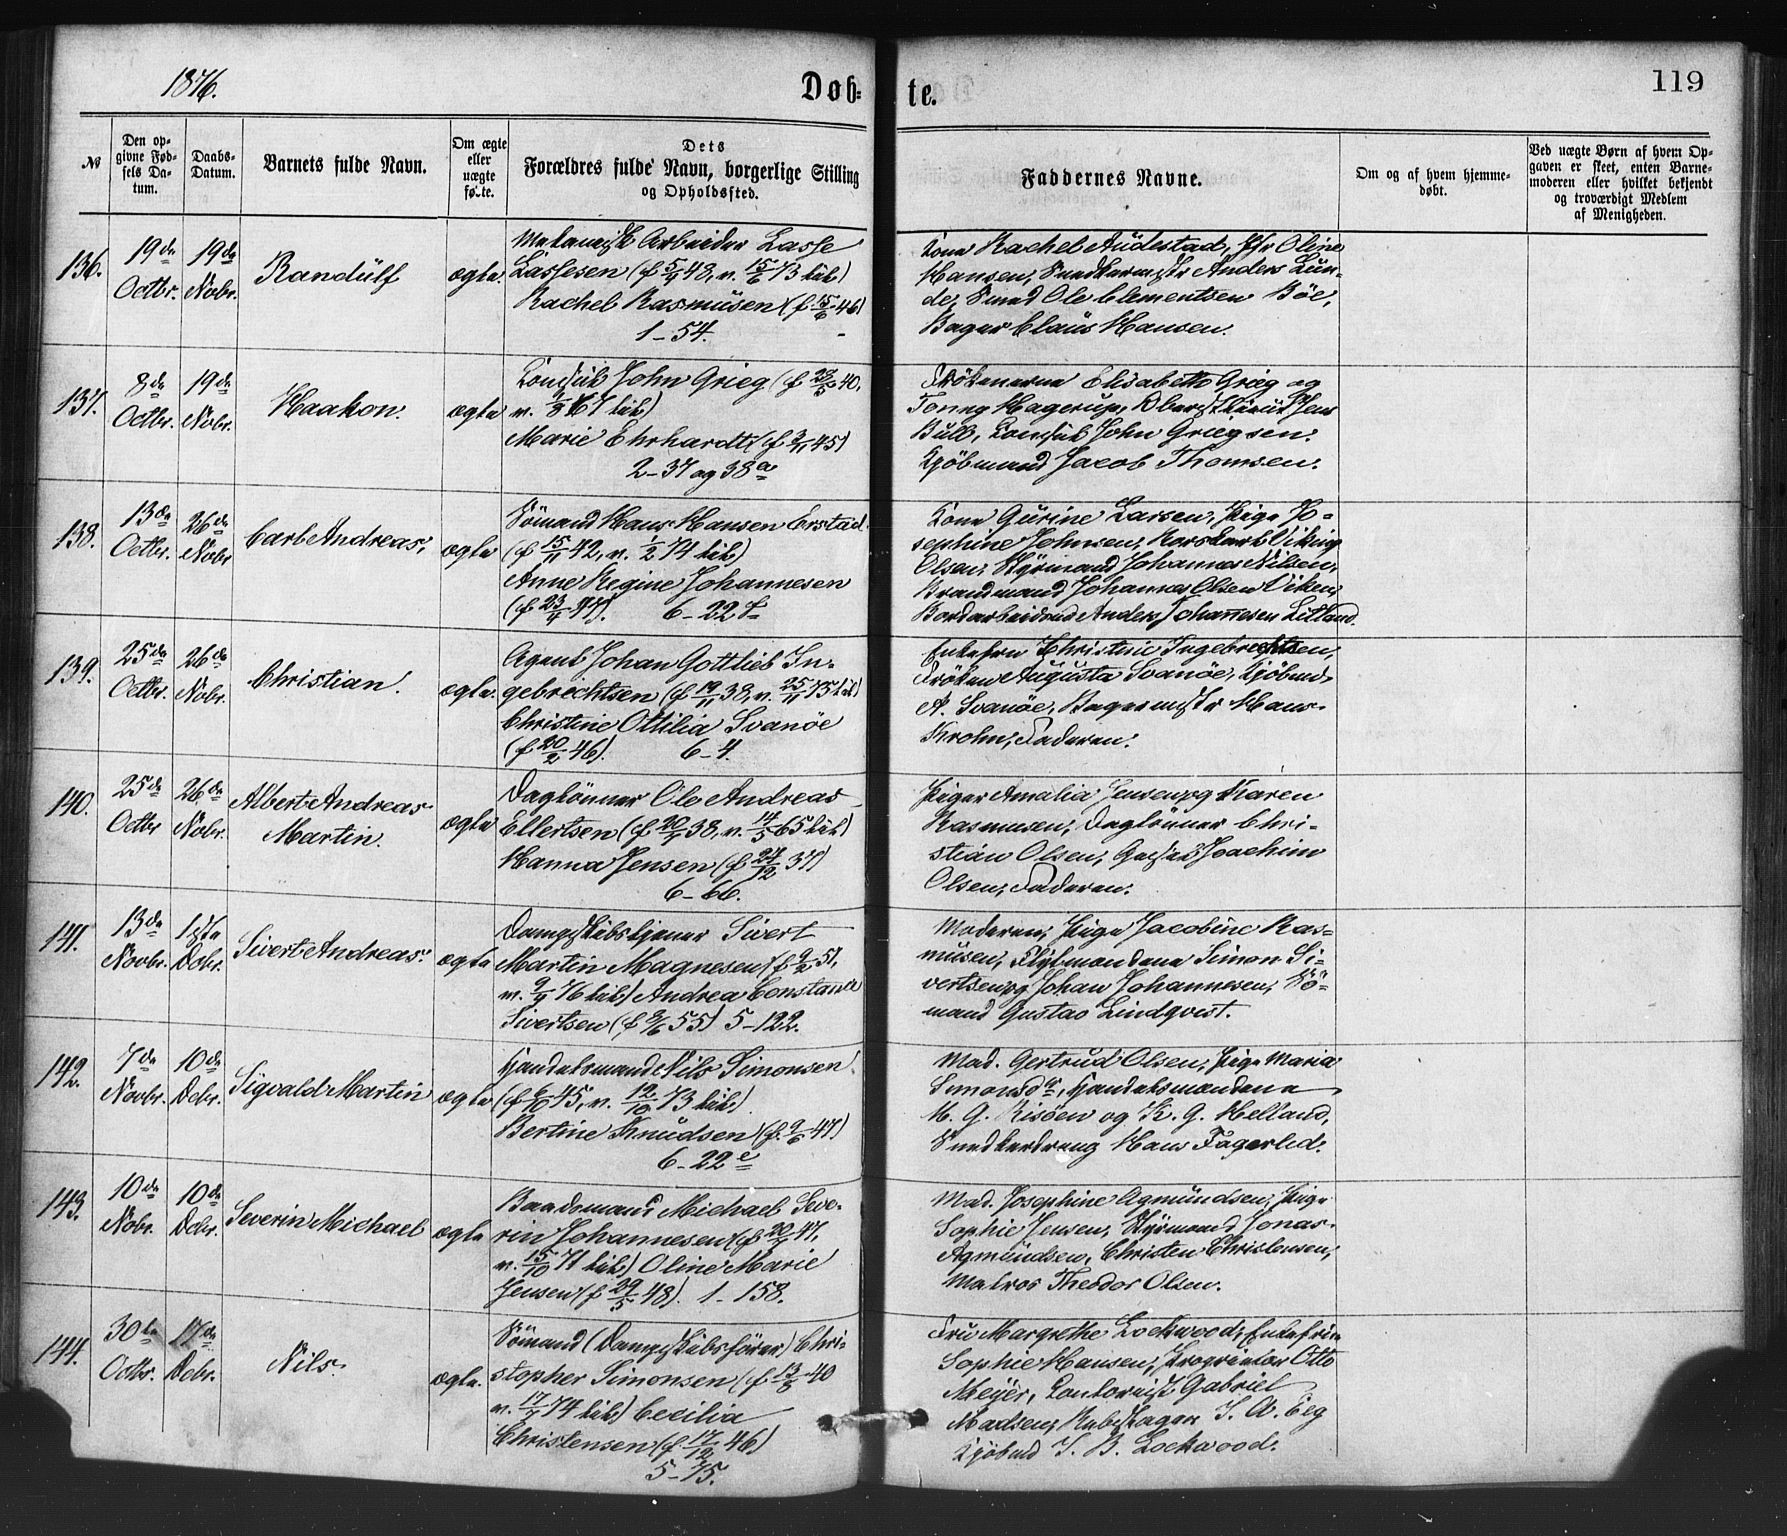 1876.
Døb-
te.
119
№
Den op-
givne Fød-
sels Da-
tum.
Daabs-
Datum.
Barnets fulde Navn.
Om ægte
eller
uægte
født.
Dets
Forældres fulde Navn, borgerlige Stilling
og Opholdssted.
Faddernes Navne.
Om og af hvem hjemme-
døbt.
Ved uægte Børn af hvem Op-
gaven er skeet, enten Barne-
moderen eller hvilket bekjendt
og troværdigt Medlem
af Menigheden.
136.
19de
Octbr.
19de
Nobr.
Randülf
ægte.
Mekanisk Arbeider Lasse
Lassesen (f 5/4 48, v. 15/6 73 kub)
Rachel Rasmüsen (f. 15/6 46)
1-54.
Kone Rachel Aüdestad, Frk Oline
Hansen, Snedkermstr Anders Lün-
de, Smed Ole Clementsen Böe,
Bager Claüs Hansen.
137.
8de
Octbr.
19de
Nobr.
Haakon.
ægte
Consül John Grieg (f 40,
v. 67 kub)
Marie Ehrhardt (f 45)
2-37 og 38a
Frökenerne Elisabeth Grieg og
Tonny Hagerup, Jens
Büll, Consül John Griegsen.
Kjöbmand Jacob Thomsen.
138.
13de
Octbr.
26de
Nobr
Carl Andreas,
ægte
Sömand Hans Hansen Erstad
(f 15/11 42, v. 1/2 74 kub)
Anne Regine Johannesen
(f 23/4 47). 6-22f
Kone Gürine Larsen, Pige Jo-
sephine Johnsen, Viking
Olsen, Styrmand Johannes Nilsen,
Brandmand Johannes Olsen Viken,
Bordarbeider Anders Johannesen Litland.
139.
25de
Octbr.
26de
Nobr.
Christian.
ægte.
Agent Johan Gottlieb In-
gebrechtsen (f 19/11 38, v. 25/11 75 kub)
Christine Ottilia Svanöe
(f 20/2 46). 6-4.
Enkefru Christine Ingebrechtsen,
Fröken Augusta Svanöe, Kjöbmd.
A. Svanöe, Bagermstr Hans
Krohn, Faderen.
140.
25de
Octbr
26de
Nobr.
Albert Andreas
Martin.
ægte
Daglönner Ole Andreas
Ellertsen (f 38, v. 14/5 65 kub)
Hanna Jensen (f 24/12 37)
6-66.
Piger Amalia Jensen og Karen
Rasmusen, Daglönner Chri-
stian Olsen, Joachim
Olsen, Faderen.
141.
13de
Novbr.
1ste
Debr.
Sivert Andreas.
ægte
Dampskibstjener Sivert
Martin Magnesen (f 9/2 51,
v. 9/4 76 kub) Andrea Constance
Sivertsen (f 55) 5-122.
Moderen, Pige Jacobine Ras-
müsen, Flytmændene Simon Si-
vertsen og Johan Johannesen, Sö-
mand Gustav Lindqvest.
142.
7de
Novbr.
10de
Debr.
Sigvald Martin
ægte
Handelsmand Nils Simonsen
(f 6/10 45, v. 12/10 73 kub)
Bertine Knüdsen (f. 9/6 47)
6-22e
Mad. Gertrud Olsen, Pige Maria
Simonsdr, Handelsmændene
M. G. Risöen og K. G. Helland,
Snedkerdreng Hans Fagerlid.
143.
10de
Nobr.
10de
Debr.
Severin Michael
ægte
Baadsmand Michael Seve-
rin Johannesen (f 47,
v. 15/10 71 kub) Oline Marie
Jensen (f 29/5 48). 1-158.
Mad. Josephine Agmündsen, Pige
Sophie Jensen, Styrmand Jonas
Agmündsen, Christen Christensen,
Matros Theodor Olsen.
144.
30te
Octbr.
17de
Debr.
Nils.
ægte.
Sömand (Dampskibsförer) Chri-
stopher Simonsen (f 13/8 40
v. 74 kub) Cecilia
Christensen (f 17/12 46)
5-75.
Fru Margrethe Lockwood, Enkefrü
Sophie Hansen, Proprietær Otto
Meyer, Contorist Gabriel
Madsen, Rebslager J. A. Eeg
Kjöbmd J. B. Lockwood.